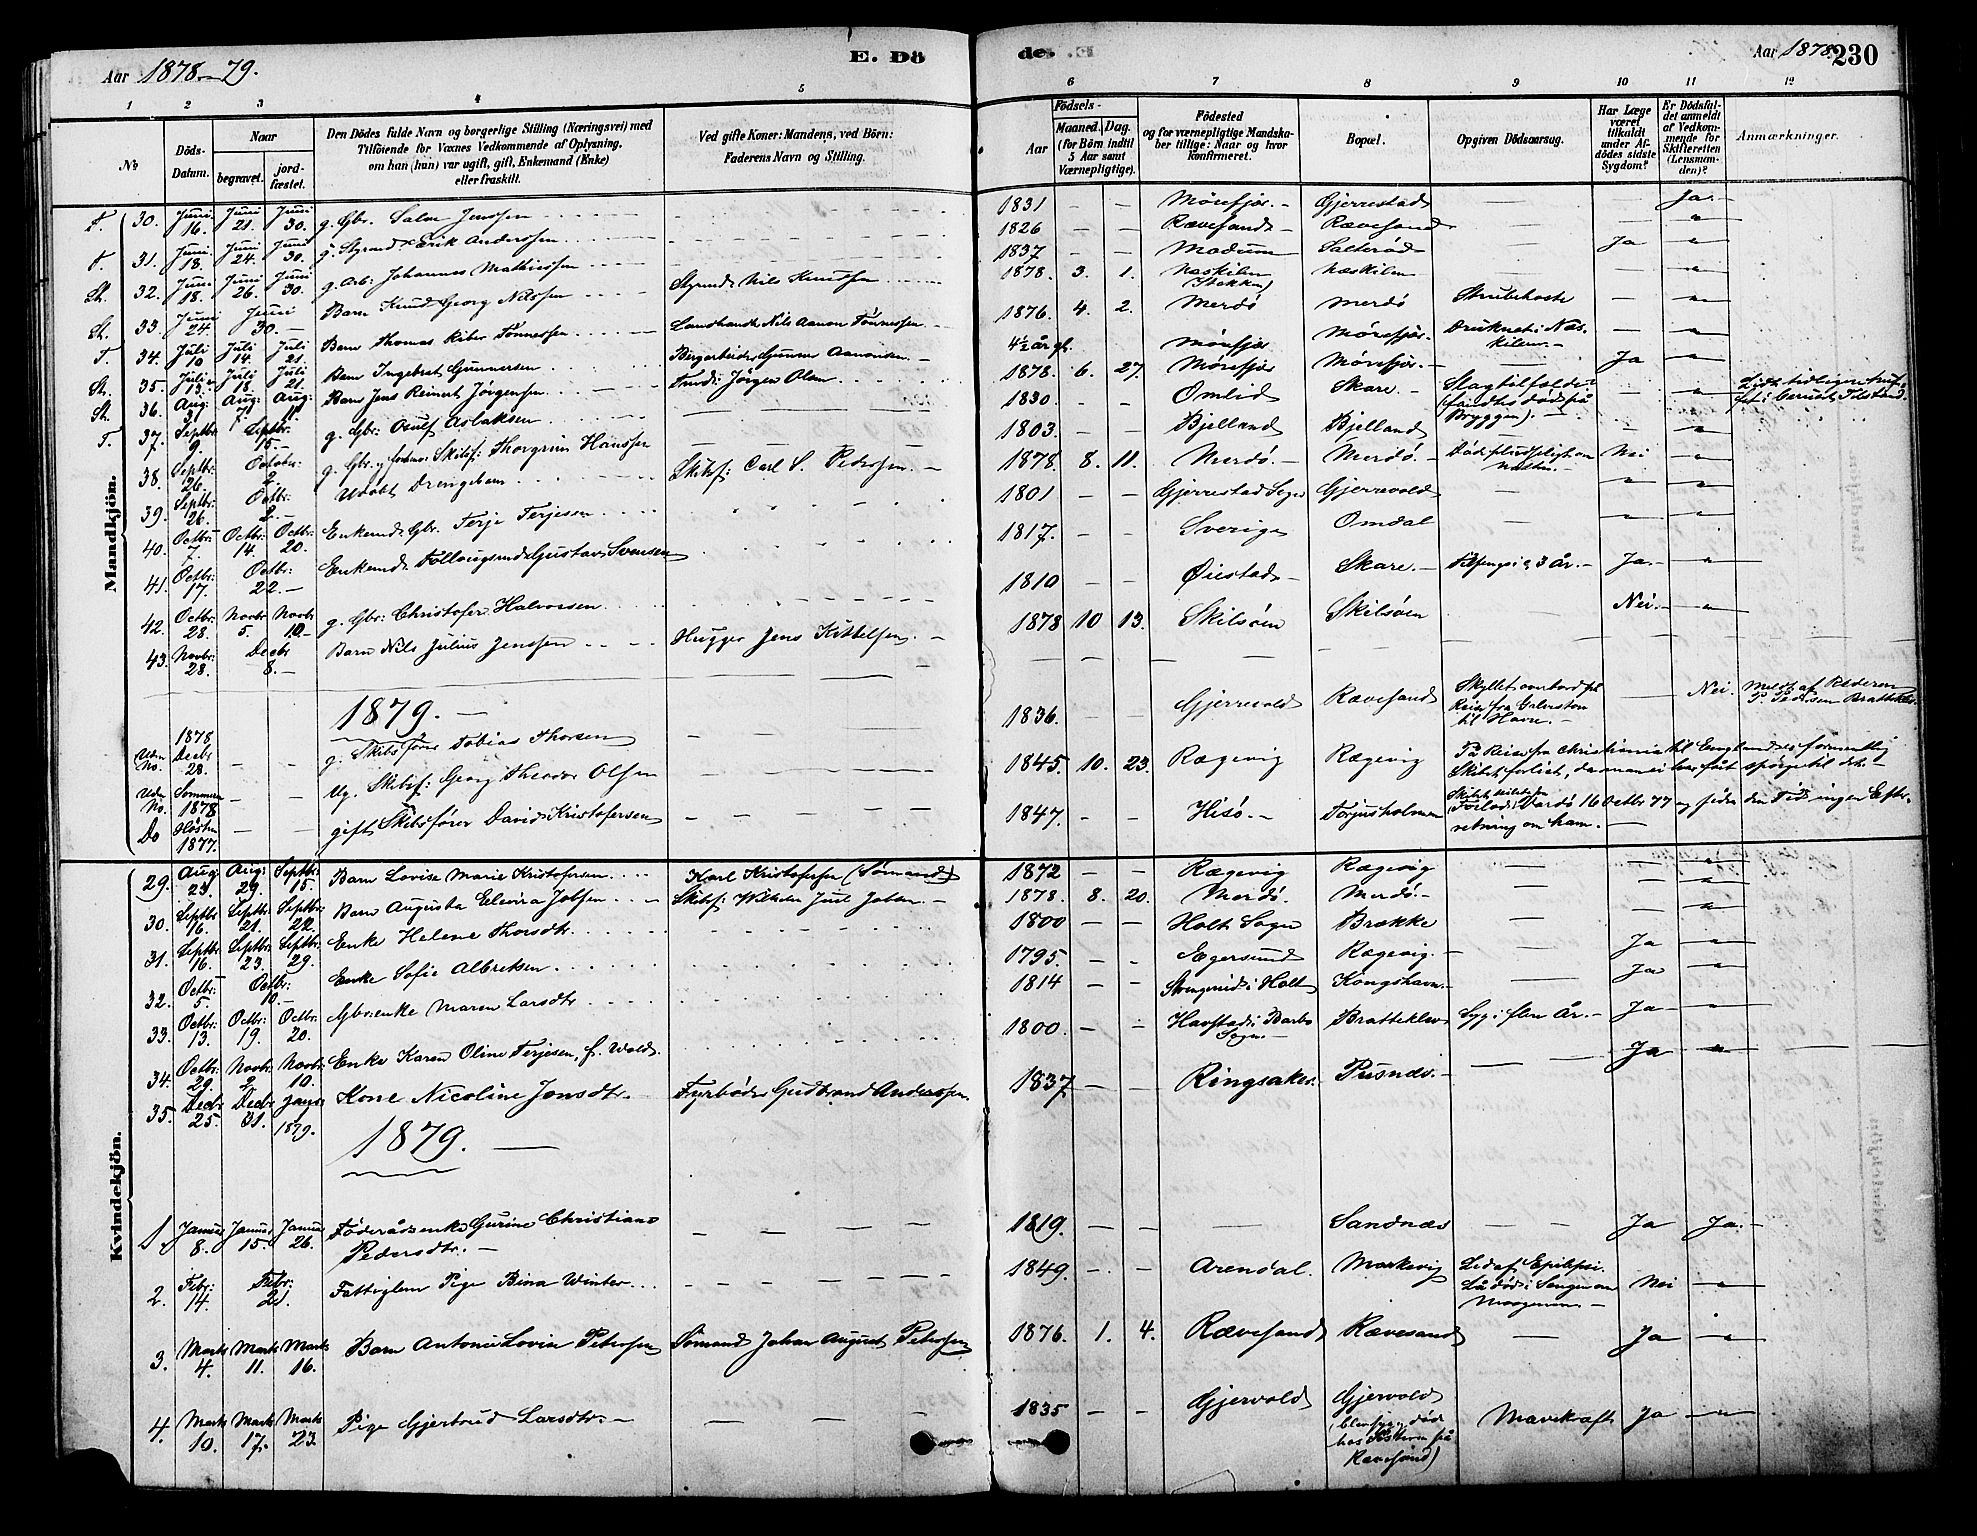 Aar 1878-79.
E. Dö
de.
Aar 1878.
230
1 2 3 4 5 6 7 8 9 10 11 12
No
Döds-
Datum.
Naar
begravet.
jord-
fæstet.
Den Dödes fulde Navn og borgerlige Stilling (Næringsvei) med
Tilföiende for Voxnes Vedkommende af Oplysning,
om han (hun) var ugift, gift, Enkemand (Enke)
eller fraskilt.
Ved gifte Koner: Mandens, ved Börn:
Faderens Navn og Stilling.
Födsels-
Aar
Maaned. Dag.
(for Börn indtil
5 Aar samt
Værnepligtige).
Födested
og for værnepligtige Mandska-
ber tillige: Naar og hvor
konfirmeret.
Bopæl.
Opgiven Dödsaarsag.
Har Læge
været
tilkaldt
under Af-
dödes sidste
Sygdom?
Er Dödsfal-
det anmeldt
af Vedkom-
mende for
Skifteretten
(Lensman-
den)?
Anmærkninger.
Mandkjön.
30. Juni 16. Juni 21. Juni 30. g. Gbr. Salve Jenssen 1831 — — Mörefjær. Gjerrestad — Ja.
31. Juni 18. Juni 24. Juni 30. g. Styrmd. Erik Anderssen 1826 — — Rævesand Rævesand — "
32. Juni 18. Juni 26. Juni 30. g. Arb: Johannes Mathiessen 1837 — — Modum Salterød — Ja "
33. Juni 24. Juni 30. Barn Knud Georg Nilssen Styrmd. Nils Knudsen 1878. 3. 1. Næskilen Næskilen — "
34. Juli 10. Juli 14. Juli 21. Barn Thomas Tönnessen Landhandl. Nils Aanon Tönnessen 1876. 4. 2. Merdö Merdö Strubehoste — "
35. Juli 13. Juli 18. Juli 21. Barn Ingebret Gunnersen Bergarbeider Gunner Aanonsen 4½ år gl. Mörefjær Mörefjær. Druknet i Næs-
kilen. — "
36. Aug: 3. Aug: 7. Aug: 11. Barn Jens Reinert Jörgensen Jörgen Olsen 1878. 6. 27. Mörefjær Mörefjær. — Ja "
37. Septbr 9. Septbr 15. g. Gbr: Osulf Aslaksen 1830. — — Omlid Skare. Slagtilfælde
(fandtes död på
Bryggen). — "
38. Septbr 26. October 2. g. Gbr. Skibsf: Thorgrim Hanssen 1803. — — Bjelland Bjelland — "
39. Septbr 26. Octbr: 2. Udöbt Drengebarn Skibsf: Carl S. Pedersen. 1878. 8. 11. Merdö. Merdö. Död pludseligt om
natten. Nei "
40. Octbr: 7. Octbr: 14. Octbr: 20. Enkemd. Gbr. Terje Terjesen 1801 — — Gjerrestad Sogn Gjerrevold — " "
41. Octbr: 17. Octbr: 22. Enkemd. Gustav Svensen 1817. — — Sverige Omdal — " "
42. Octbr: 28. Novbr 5. Novbr 10. g. Gbr: Christofer Halvorsen 1810 — — Öiestad Skare. 3 år. Ja. "
43. Novbr: 28. Decbr 8. Barn Nils Julius Jenssen Hugger Jens Kittelsen. 1878 10 13. Skilsöen Skilsöen — Nei. "
1879.
Uden No. 1878 Decbr 28. g. Skibsförer Tobias Thorsen 1836. — — Gjerrevold Rævesand Skyllet overbord på
Reise fra Galveston
til Havre. — Nei. Meldt af Rederen
P. Pedersen Bratteklev.
Uden No. Sommeren 1878 Ug. Skibsf: Georg Theodor Olsen 1845. 10. 23. Rægevig Rægevig På Reise fra Christiania til England er formentlig
Skibet forlist, da man ei har fåt spörge til det.
Do Hösten 1877. gift Skibsförer David Kristofersen 1847. — — Hisö. Torjusholmen Forlod Vardö 16 Octbr 77 og siden den Tid ingen Efter-
retning om ham.
Kvindekjön.
29. Aug 23. Aug: 29. Septbr: 15. Barn Lovise Marie Kristofersen Karl Kristofersen (Sömand) 1872 — — Rægevig Rægevig — — "
30. Septbr 16. Septbr 21. Septbr 22. Barn Augusta Elvira Johsen Skibsf: Wilhelm Juel Johsen 1878. 8. 20. Merdö. Merdö. — — "
31. Septbr: 16. Septbr: 23. Septbr: 29. Enke Helene Thorsdtr. 1800 — — Holt Sogn Brække — — "
32. Octbr: 5. Octbr: 10. Enke Sofie Albretsen 1795. — — Egersund Rægevig. — Ja "
33. Octbr: 13. Octbr: 19. Octbr: 20. Gbr: enke Maren Larsdtr. 1814 — — i Holt Kongshavn. — Ja "
34. Octbr: 29. Novbr: 2. Novbr: 10. Enke Karen Oline Terjesen, f. Wold. 1800. — — Havstad i Barbo
Sogn Bratteklev Syg i flere År. Ja "
35. Decbr 25. Decbr 31. Janr 1879. Kone Nicoline Jonsdtr. Fyrböder Gudbrand Anderssen 1837 — — Ringsaker. Pusnæs. — Ja "
1879.
1. Januar 8. Januar 15. Januar 26. Föderådsenke Gurine Christiane
Pedersdtr. 1819. — — — Sandnæs — Ja Ja.
2. Febr: 14. Febr: 21. Fattiglem Pige Bina Winter 1849. — — Arendal. Markevig Led af Epilepsi.
Lå död i Sengen om
Morgenen. Nei "
3. Marts 4. Marts 11. Marts 16. Barn Antonie Lovise Peterssen Sömand Johan August Peterssen 1876. 1. 4. Rævesand Rævesand — Ja "
4. Marts 10. Marts 17. Marts 23. Pige Gjertrud Larsdtr. 1835 — — Gjervold Gjervold
(blev syg og döde
hos på
Rævesand) Mavekræft Ja "